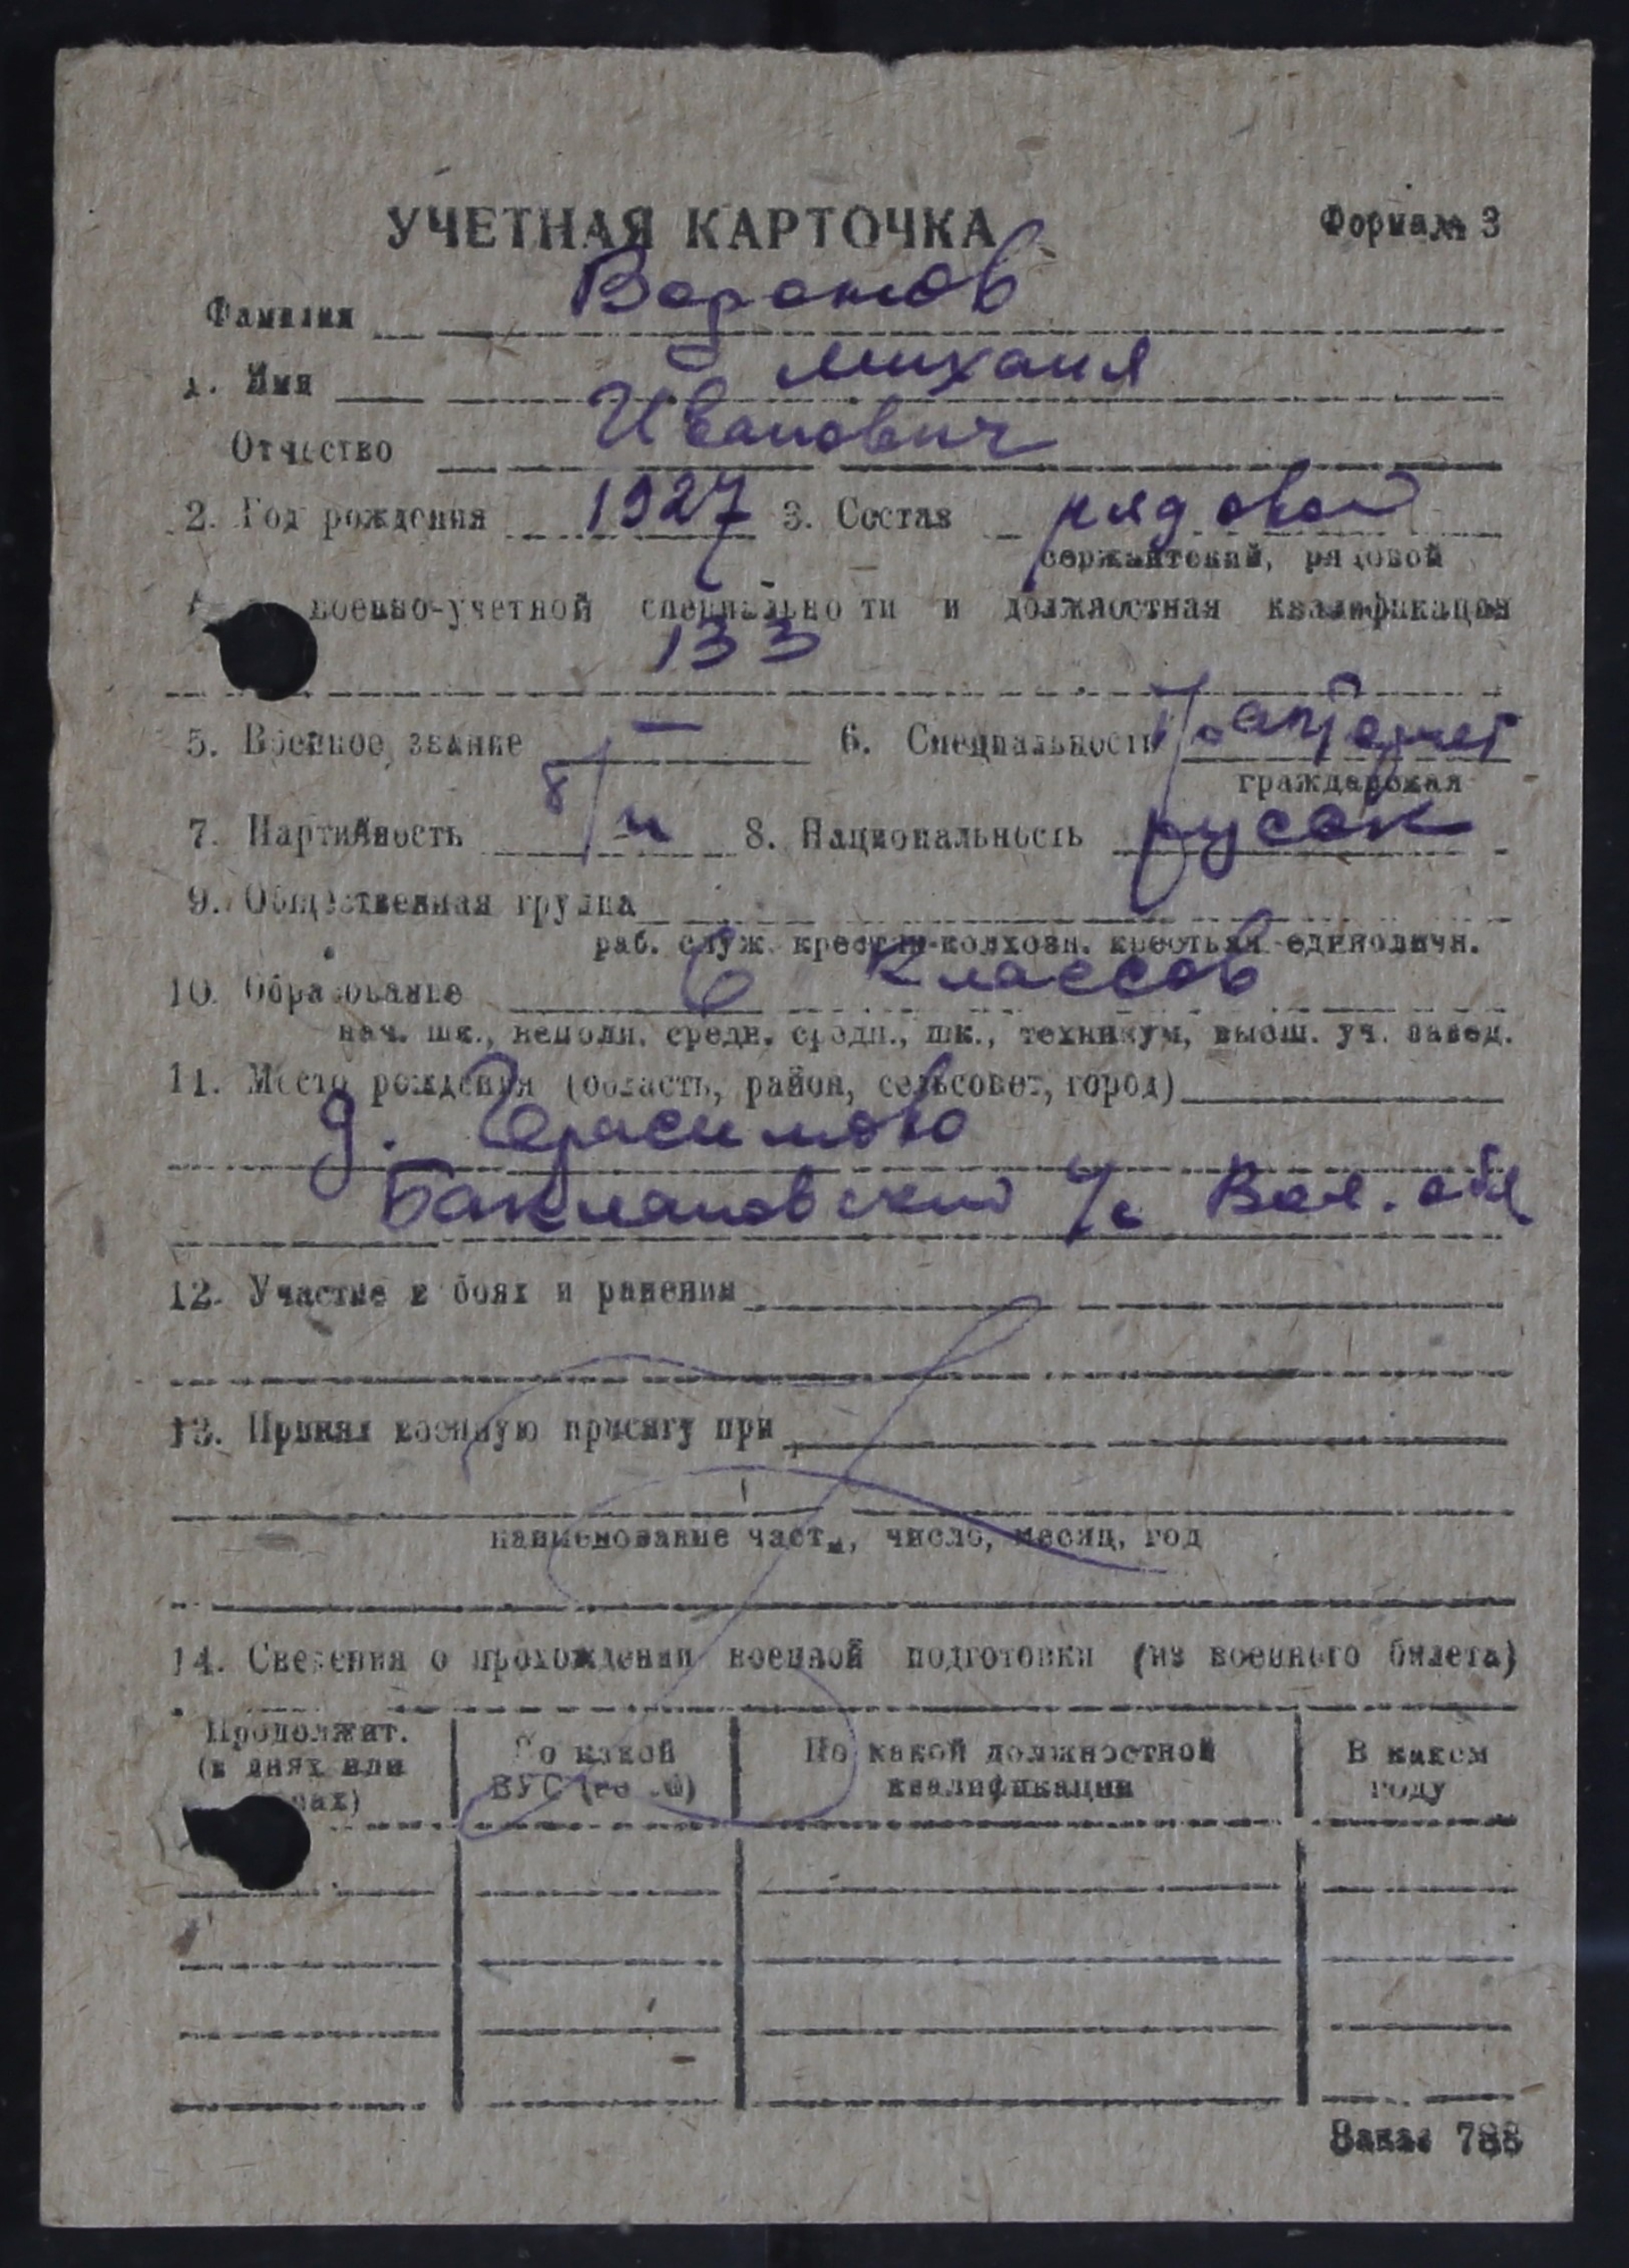 УЧЕТНАЯ КАРТОЧКА
Форма № 3
Фамилия
1. Имя Михаил
Отчество Иванович
2. Год рождения 1927 3. Состав рядовой
сержантский, рядовой
военно-учетной специальности и должностная квалификация
133
5. Военное звание — 6. Специальность
гражданская
7. Партийность б/п 8. Национальность русак
9. Общественная группа
раб. служ. крестьян-колхозн. крестьян-единоличн.
10. Образование 6 классов
нач. шк., неполн. средн. средн., шк., техникум, высш. уч. завед.
11. Место рождения (область, район, сельсовет, город)
д. Герасимово
Баклановский с/с Вол. обл
12. Участие в боях и ранения
13. Принял военную присягу при
наименование части, число, месяц, год
14. Сведения о прохождении военной подготовки (из военного билета)
Продолжит. (в днях или
По какой ВУС (№ №)
По какой должностной квалификации
В каком году
Заказ 788